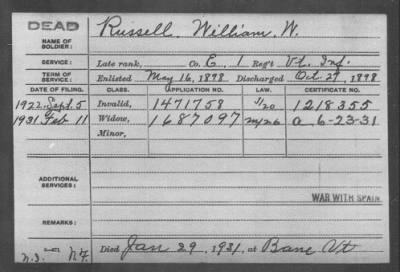 DEAD
NAME OF SOLDIER: Russell, William W.
SERVICE: Late rank, Co. E, 1 Reg't Vt. Inf.
TERM OF SERVICE: Enlisted May 16, 1898 Discharged Oct. 27, 1898
DATE OF FILING. CLASS. APPLICATION NO. LAW. CERTIFICATE NO.
1922 Sept. 5 Invalid, 1471758 1218355
1931 Feb 11 Widow, 1687097 a 6-23-31
Minor,
ADDITIONAL SERVICES:
WAR WITH SPAIN
REMARKS:
Died Jan 29, 1931, at Vt